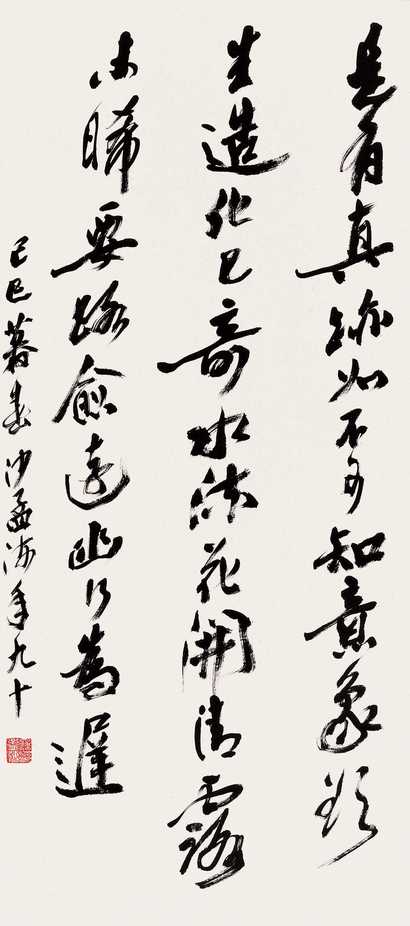 是有真跡如不可知意象欲
生造化已奇水流花開清露
未晞要路愈遠幽行為遲
己巳暮春沙孟海年九十